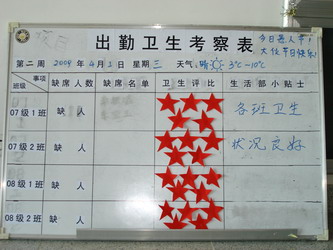 出勤卫生考察表
今日愚人节！
大伙节日快乐！
第二周 2009年4月1日 星期三 天气：晴 3℃~10℃
事项 班级 缺席人数 缺席名单 卫生评比 生活部小贴士
07级1班 缺 人 各班卫生
07级2班 缺 人 状况良好
08级1班 缺 人
08级2班 缺 人